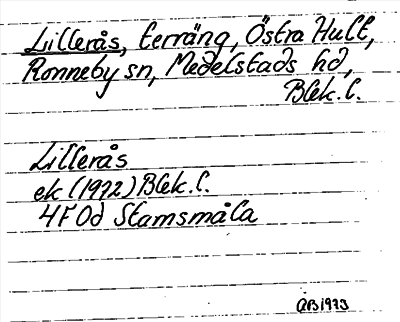 Lillerås, terräng, Östra Hult,
Ronneby sn, Medelstads hd,
Blek.l.
Lillerås
ek (1972) Blek.l.
4F 0d Stamsmåla
QB 1973